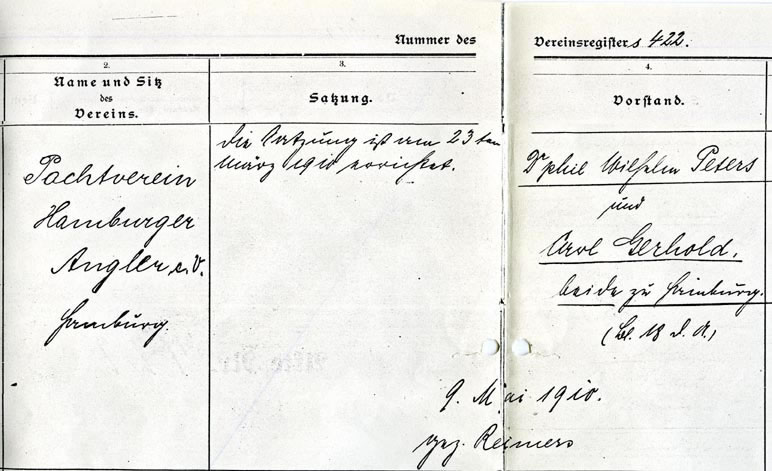 Nummer des Vereinsregisters 422.
2.
Name und Sitz
des
Vereins.
3.
Satzung.
4.
Vorstand.
Pachtverein
Hamburger
Angler, e.V.
Hamburg.
Die Satzung ist am 23ten
März 1910 errichtet.
Dr phil Wilhelm Peters
und
Carl Gerhold,
beide zu Hamburg.
(Bl. 18 d. A)
9. Mai 1910.
gez. Reimers